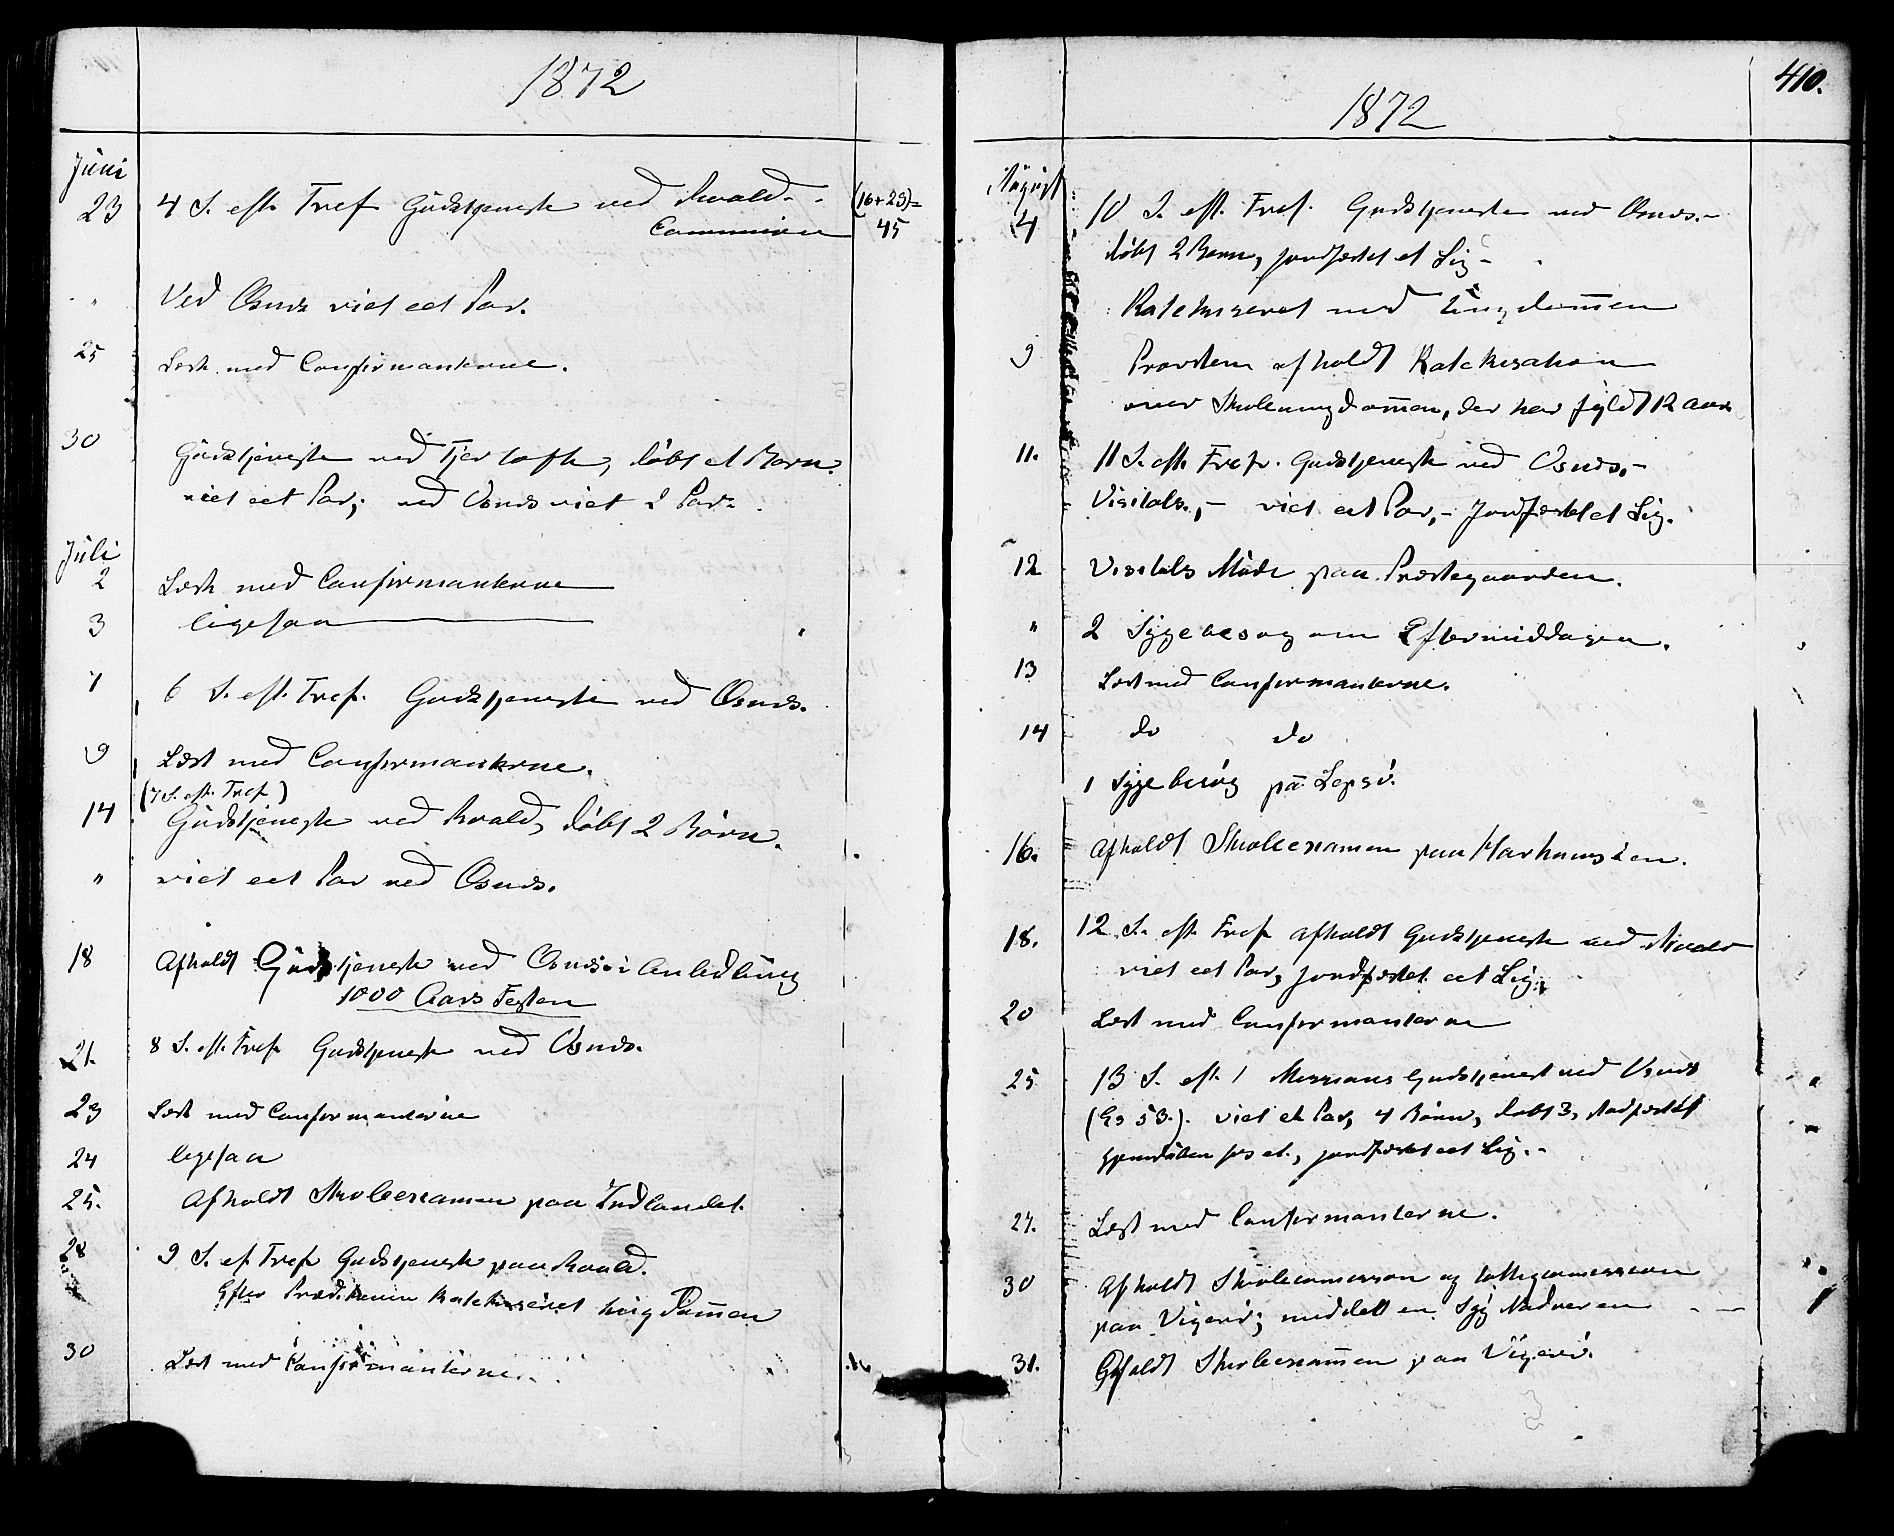 1872
Juni
23 4 S. eft. Tref Gudstjeneste ved Roald. (16+29)=
Communion 45
" Ved Osnes viet eet Par.
25 Læst med Confirmanterne.
30 Gudstjeneste ved Fjertofte, døbt et Barn.
viet eet Par; ved Osnes viet 2 Par.
Juli
2 Læst med Confirmanterne
3 ligesaa
7 6 S. eft. Tref. Gudstjeneste ved Osnes.
9 Læst med Confirmanterne.
(7 S. eft. Tref)
14 Gudstjeneste ved Roald, døbt 2 Børn.
" viet eet Par ved Osnes.
18 Afholdt Gudstjeneste ved Osnes i Anledning
1000 Aars Festen
21. 8 S. eft. Tref Gudstjeneste ved Osnes.
23 Læst med Confirmanterne
24 ligesaa
25. Afholdt Skoleexamen paa Indlandet.
28 9 S. ef Tref Gudstjeneste paa Roald.
Efter Prædikenen Katekiseret Ungdom̄en
30 Læst med Konfirmanterne.
410.
1872
August
4 10 S. eft. Tref. Gudstjeneste ved Osnes.-
døbt 2 Børn, jordfæstet et Lig-
Katekiseret med Ungdom̄en
9 Provsten afholdt Katekisation
over Skoleungdom̄en, der har fyldt 12 Aar
11. 11 S. eft. Tref. Gudstjeneste ved Osnes.-
Visitats.,- viet eet Par,- Jordfæstet et Lig.
12 Visitats Møde paa Præstegaarden.
" 2 Sygebesøg om Eftermiddagen.
13 Læst med Confirmanterne.
14 do do
1 Sygebesøg på Lepsø.
16. Afholdt Skoleexamen paa Harhamsøen.
18. 12 S. eft. Tref afholdt Gudstjeneste ved Roald
viet eet Par, jordfæstet eet Lig.
20 Læst med Confirmanterne
25 13 S. eft. / Missions Gudstjenest ved Osnes
(Es 53.). viet et Par, 4 Børn, døbt 3, stadfæstet
for et, jordfæstet eet Lig.-
27. Læst med Confirmanterne.
30 Afholdt Skolecommission og fattigcommission
paa Vigerø; meddelt en Syg Nadveren
31. Afholdt Skoleexam̄en paa Vigerø.